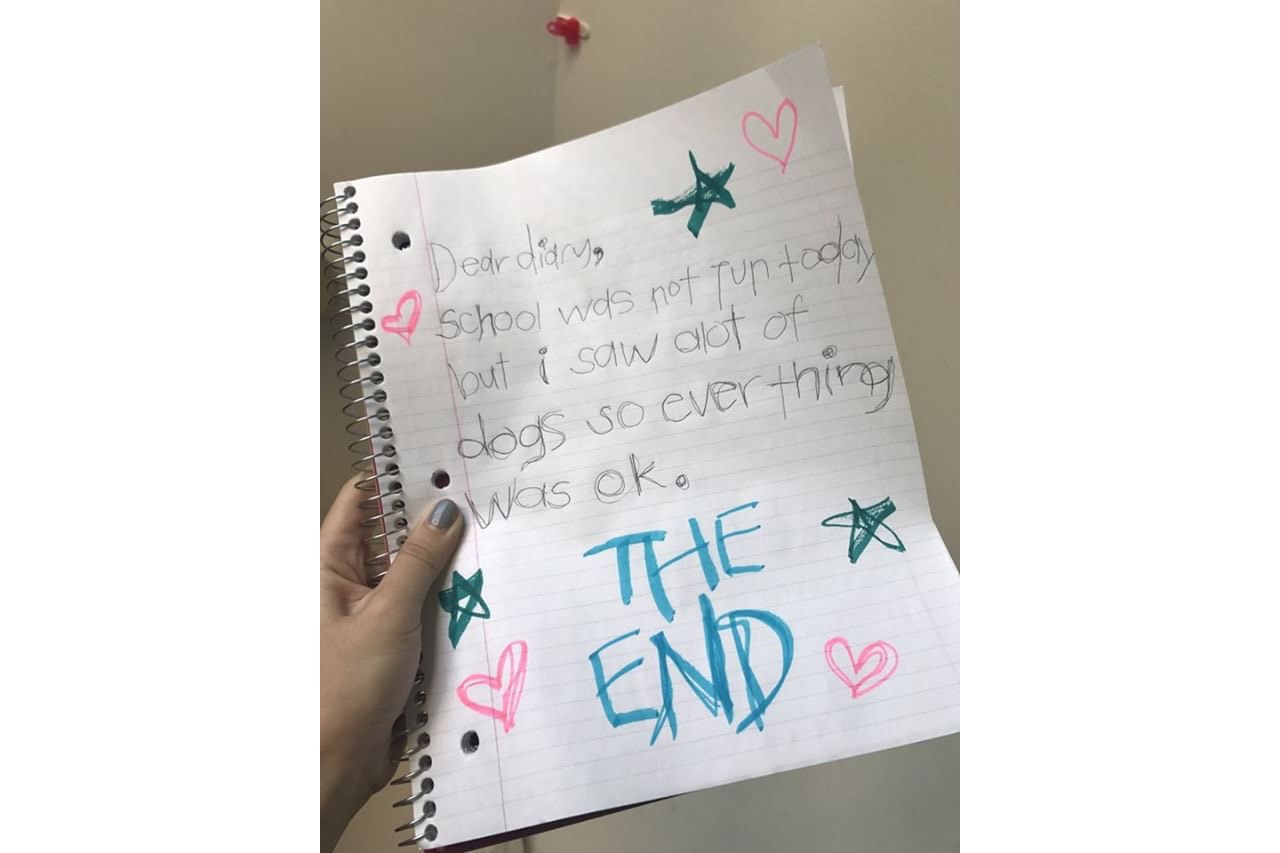 Dear diary,
school was not fun today
but i saw alot of
dogs so everthing
was ok.
THE
END